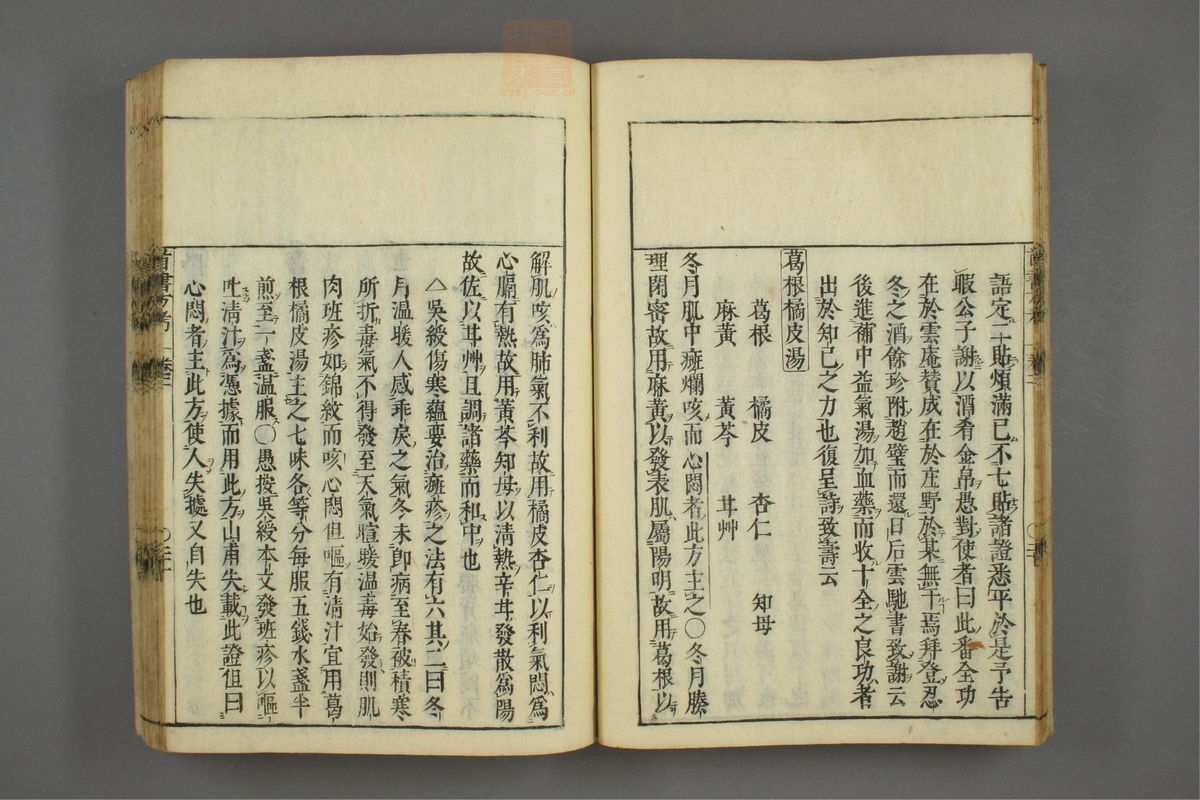 語定二貼煩滿已不七貼諸證悉平於是予告
暇公子謝以酒肴金帛愚對使者曰此番全功
在於雲庵贊成在於庄野於某無干焉拜登忍
冬之酒餘珍附趙璧而還日后雲馳書致謝云
後進補中益氣湯加血藥而收十全之良功者
出於知己之力也復呈詩致壽云
葛根橘皮湯
葛根 橘皮 杏仁 知母
麻黃 黃芩 甘艸
冬月肌中瘢爛咳而心悶者此方主之〇冬月腠
理閉密故用麻黃以發表肌屬陽明故用葛根以
解肌咳為肺氣不利故用橘皮杏仁以利氣悶為
心膈有熱故用黃芩知母以清熱辛甘發散為陽
故佐以甘艸且調諸藥而和中也
△吳綬傷寒蘊要治瘢疹之法有六其二曰冬
月溫暖人感乖戾之氣冬未即病至春被積寒
所折毒氣不得發至天氣暄暖溫毒始發則肌
肉班疹如錦紋而咳心悶但嘔有清汁宜用葛
根橘皮湯主之七味各等分每服五錢水盞半
煎至一盞溫服〇愚按吳綬本文發班疹以嘔
吐清汁為憑據而用此方山甫失載此證但曰
心悶者主此方使人失據又自失也